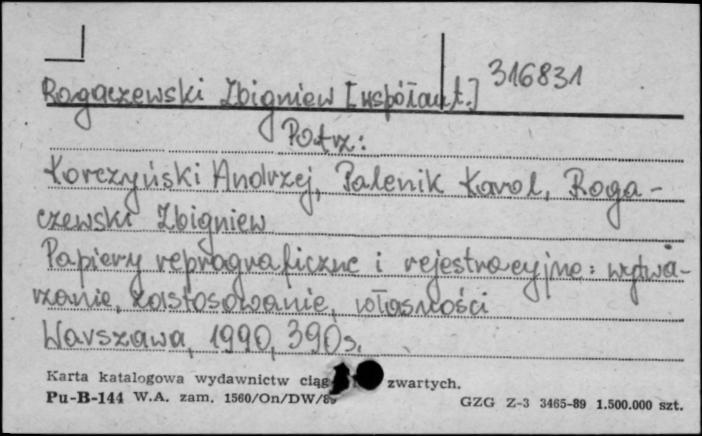 316831
Rogaczewski Zbigniew [współaut.]
Patrz:
Korczyński Andrzej, Palenik Karol, Roga-
czewski Zbigniew
Papiery reprograficzne i rejestracyjne: wytwa-
rzanie, zastosowanie, własności
Warszawa, 1990, 390 s.
Karta katalogowa wydawnictw zwartych.
Pu-B-144 W.A. zam. 1560/On/DW/89
GZG Z-3 3465-89 1.500.000 szt.